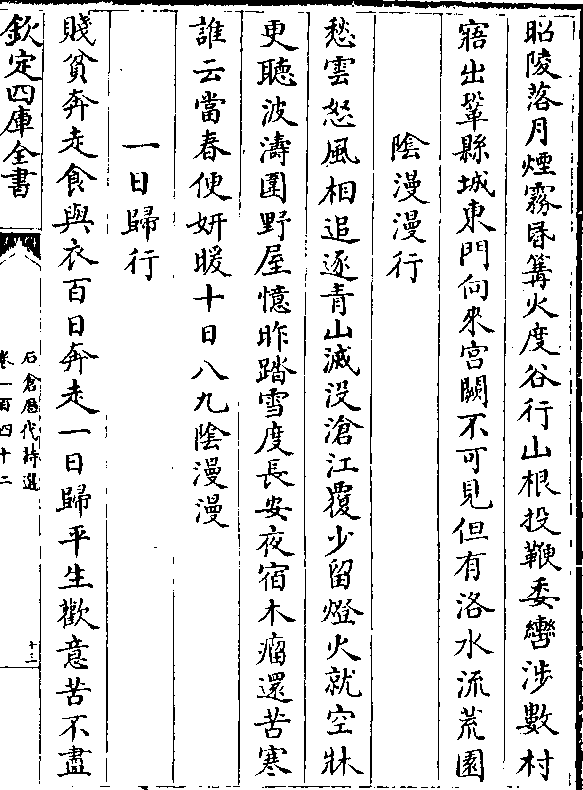 昭陵落月煙霧昏篝火度谷行山根投鞭委轡涉數村
寤出鞏縣城東門向來宫闕不可見但有洛水流荒園
陰漫漫行
愁雲怒風相追逐青山滅沒滄江覆少留燈火就空牀
更聽波濤圍野屋憶昨踏雪度長安夜宿木瘤還苦寒
誰云當春便妍暖十日八九陰漫漫
一日歸行
賤貧奔走食與衣百日奔走一日歸平生歡意苦不盡
欽定四庫全書
石倉歷代詩選
卷一百四十二
十三